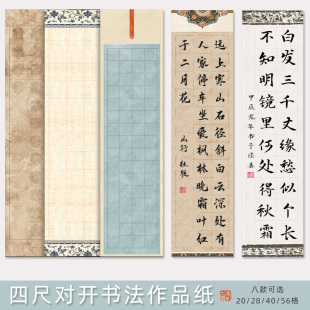 白发三千丈缘愁似个长
不知明镜里何处得秋霜
甲辰龙年书于
远上寒山石径斜白云深处有
人家停车坐爱枫林晚霜叶红
于二月花
山行 杜牧
四尺对开书法作品纸
八款可选
20/28/40/56格